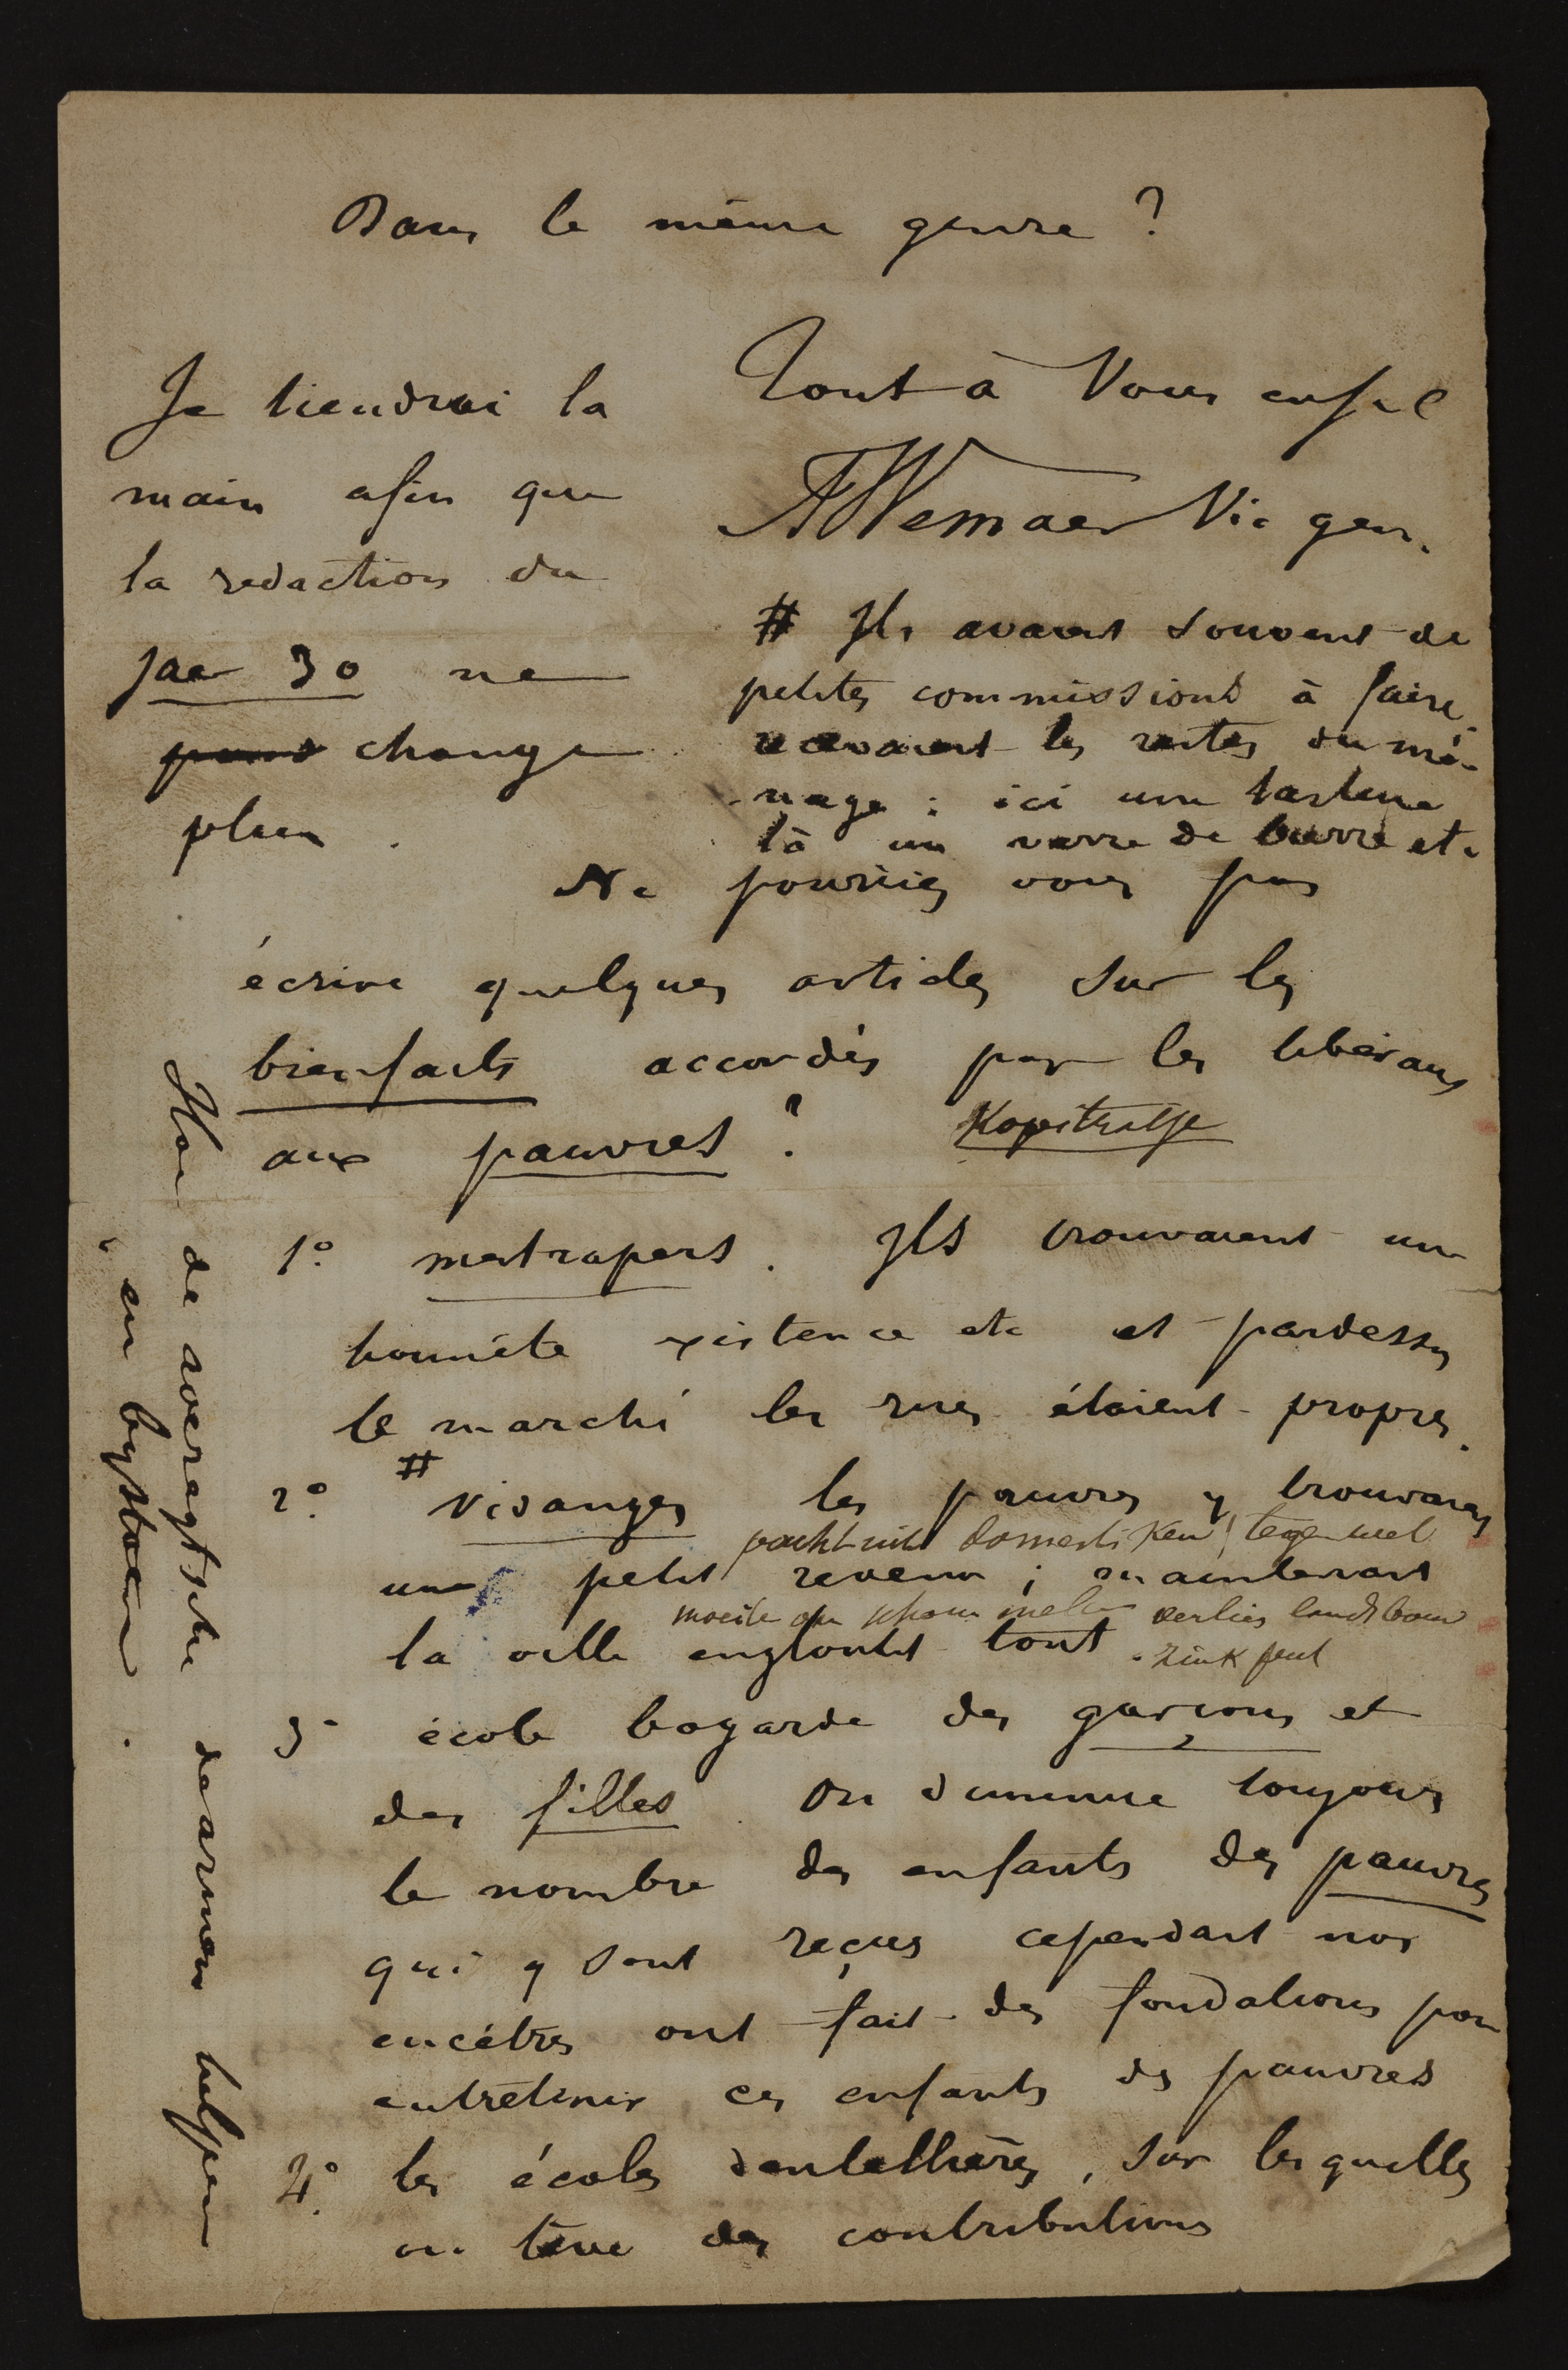 Dans le même genre ?
Je tiendrai la
main afin que
la redaction du
jaer 30 ne
change
plus .
Tout à Vous
A Wemaer Vic gen.
# Ils avaient souvent de
petites commissions à faire,
recevaient les restes du mé-
-nage : ici une tartine
là un verre de bierre etc
Ne pourriez vous pas
écrire quelques articles sur les
bienfaits accordés par les liberaux
aux pauvres ?
1° mestrapers . Ils trouvaient une
honnête existence etc et pardessus
le marché les rues étaient propres.
2° # vidanges les pauvres y trouvaient
pacht uit domestiken tegen wel
un petit revenu ; maintenant
verlies landbouw
la ville engloutit tout .
3° école bogarde des garçons et
des filles . On diminue toujours
le nombre des enfants des pauvres
qui y sont reçus cependant nos
encêtres ont fait des fondations pour
entretenir ces enfants des pauvres
4° les écoles dentellières , sur lesquelles
on lève des contributions
Hoe de averegtsche de armen helpen
en bystaen .